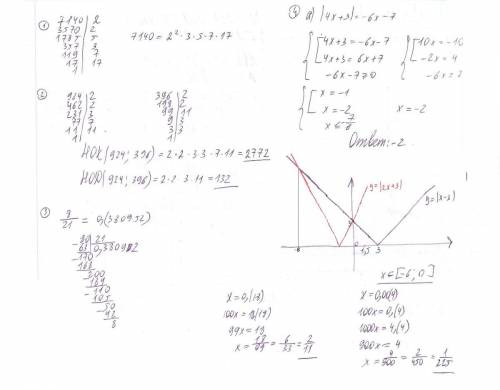 ①
7140 | 2
3570 | 2
1785 | 5
357 | 3
119 | 7
17 | 17
1 |
7140 = 2² · 3 · 5 · 7 · 17
②
462 | 2
231 | 3
77 | 7
11 | 11
1 |
396 | 2
198 | 2
99 | 11
9 | 3
3 | 3
1 |
НОК (924; 396) = 2 · 2 · 3 · 3 · 7 · 11 = 2772
НОД (924; 396) = 2 · 2 · 3 · 11 = 132
③
= 0,(380952)
- 80 | 21
63 | 0,380952
- 170
168
200
189
- 110
105
- 50
42
8
а) |4x+3| = -6x-7
4x+3 = -6x-7
4x+3 = 6x+7
-6x-7≥0
10x = -10
-2x = 4
x = -1
x = -2
x = -2
Ответ: -2
y=|2x+3|
y=|x-3|
-6
0
1,5
3
x ∈ [-6; 0]
x = 0,(18)
100x = 18,(18)
99x = 18
x = 18/99 = 6/33 = 2/11
x = 0,00(4)
100x = 0,(4)
1000x = 4,(4)
900x = 4
x = 4/900 = 2/450 = 1/225